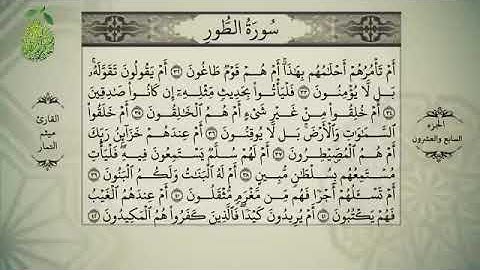 سُورَةُ الطُّورِ
أَمْ تَأْمُرُهُمْ أَحْلَٰمُهُم بِهَٰذَآ أَمْ هُمْ قَوْمٌ طَاغُونَ ٣٢ أَمْ يَقُولُونَ تَقَوَّلَهُۥ
بَل لَّا يُؤْمِنُونَ ٣٣ فَلْيَأْتُوا۟ بِحَدِيثٍ مِّثْلِهِۦٓ إِن كَانُوا۟ صَٰدِقِينَ
٣٤ أَمْ خُلِقُوا۟ مِنْ غَيْرِ شَىْءٍ أَمْ هُمُ ٱلْخَٰلِقُونَ ٣٥ أَمْ خَلَقُوا۟
ٱلسَّمَٰوَٰتِ وَٱلْأَرْضَ بَل لَّا يُوقِنُونَ ٣٦ أَمْ عِندَهُمْ خَزَآئِنُ رَبِّكَ
أَمْ هُمُ ٱلْمُصَۣيْطِرُونَ ٣٧ أَمْ لَهُمْ سُلَّمٌ يَسْتَمِعُونَ فِيهِ فَلْيَأْتِ
مُسْتَمِعُهُم بِسُلْطَٰنٍ مُّبِينٍ ٣٨ أَمْ لَهُ ٱلْبَنَٰتُ وَلَكُمُ ٱلْبَنُونَ ٣٩
أَمْ تَسْـَٔلُهُمْ أَجْرًا فَهُم مِّن مَّغْرَمٍ مُّثْقَلُونَ ٤٠ أَمْ عِندَهُمُ ٱلْغَيْبُ
فَهُمْ يَكْتُبُونَ ٤١ أَمْ يُرِيدُونَ كَيْدًا فَٱلَّذِينَ كَفَرُوا۟ هُمُ ٱلْمَكِيدُونَ ٤٢
الجزء
السابع والعشرون
القارئ
ميثم
التمار